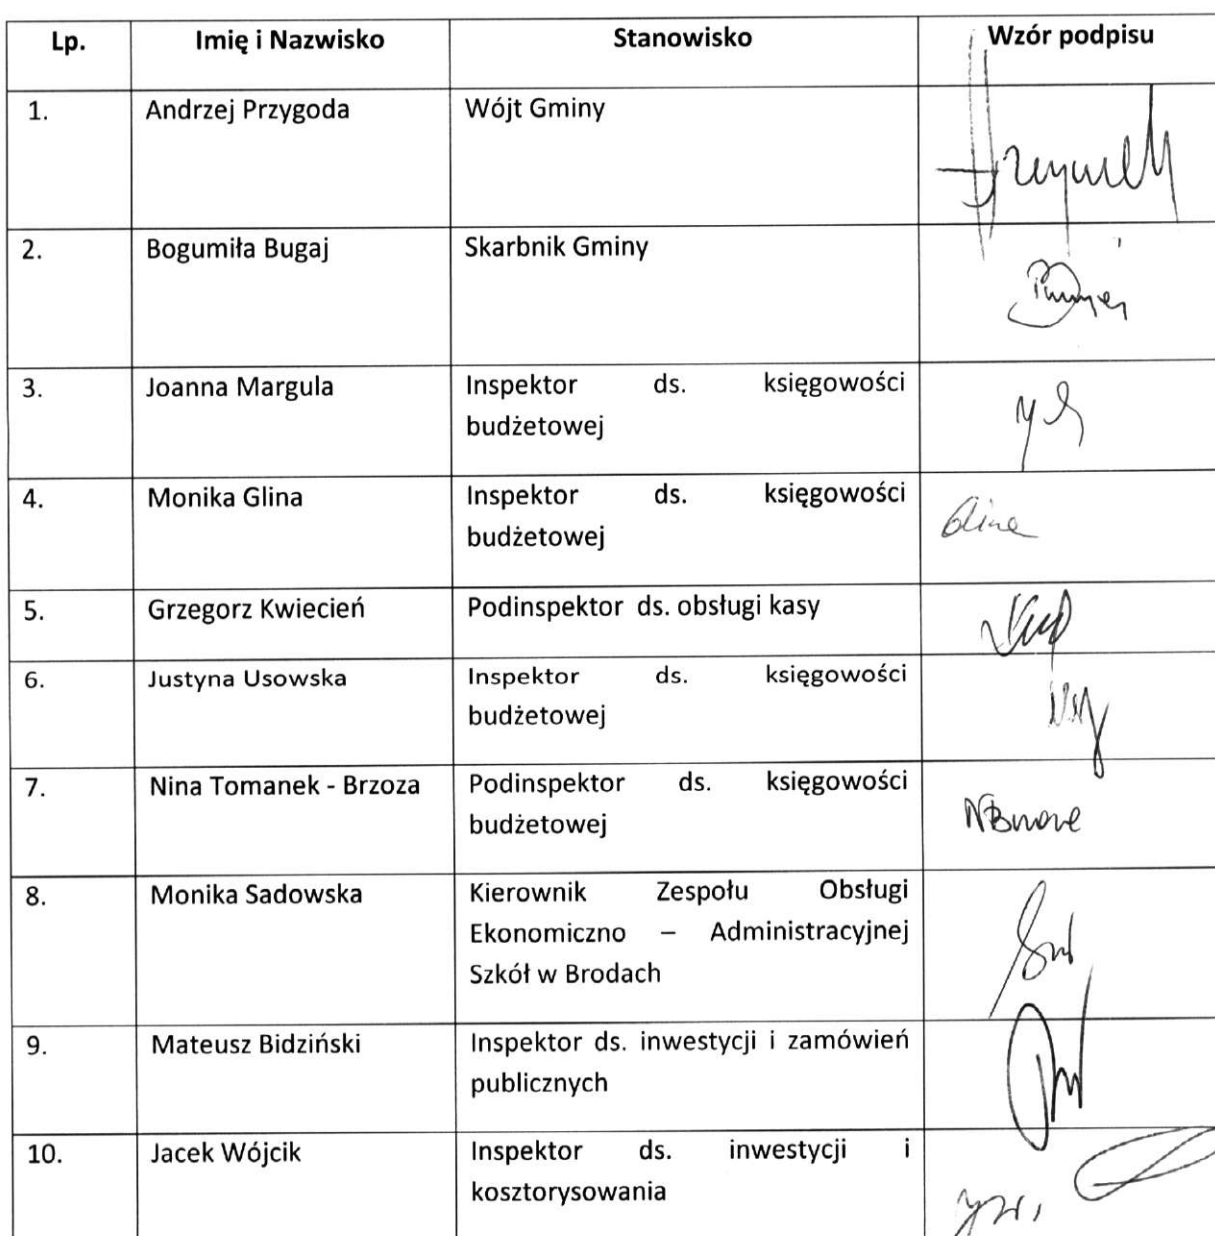 Lp. Imię i Nazwisko Stanowisko Wzór podpisu
1. Andrzej Przygoda Wójt Gminy
2. Bogumiła Bugaj Skarbnik Gminy
3. Joanna Margula Inspektor ds. księgowości
budżetowej
4. Monika Glina Inspektor ds. księgowości
budżetowej
5. Grzegorz Kwiecień Podinspektor ds. obsługi kasy
6. Justyna Usowska Inspektor ds. księgowości
budżetowej
7. Nina Tomanek - Brzoza Podinspektor ds. księgowości
budżetowej
8. Monika Sadowska Kierownik Zespołu Obsługi
Ekonomiczno – Administracyjnej
Szkół w Brodach
9. Mateusz Bidziński Inspektor ds. inwestycji i zamówień
publicznych
10. Jacek Wójcik Inspektor ds. inwestycji i
kosztorysowania